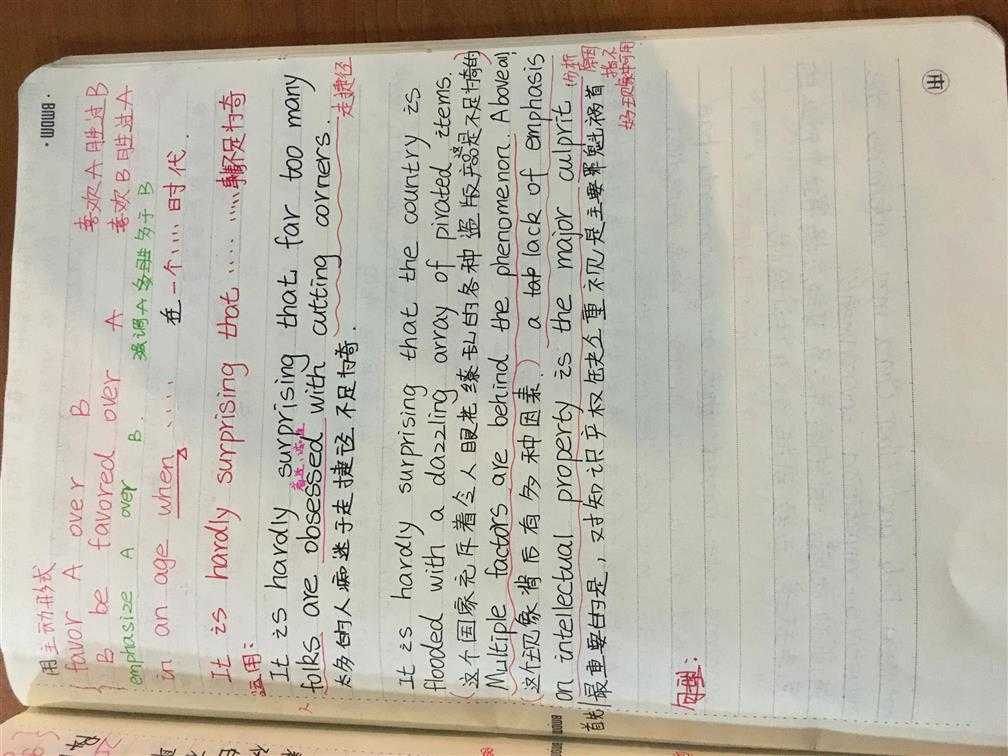 用主动形式
favor A over B 喜欢A胜过B
B be favored over A 喜欢B胜过A
emphasize A over B. 强调A多于B
in an age when ...... 在一个……时代
It is hardly surprising that .... ……不足为奇
运用:
It is hardly surprising that far too many
着迷
folks are obsessed with cutting corners.
走捷径
太多的人痴迷于走捷径不足为奇.
It is hardly surprising that the country is
flooded with a dazzling array of pirated items.
(这个国家充斥着令人眼花缭乱的各种盗版产品这是不足为奇的)
Multiple factors are behind the phenomenon. Above all,
(这个现象背后有多种因素.) a lack of emphasis
on intellectual property is the major culprit
首先/最重要的是，对知识产权缺乏重视是主要罪魁祸首
分析原因
指不好现象中用
句型:
BMDM
BMDM